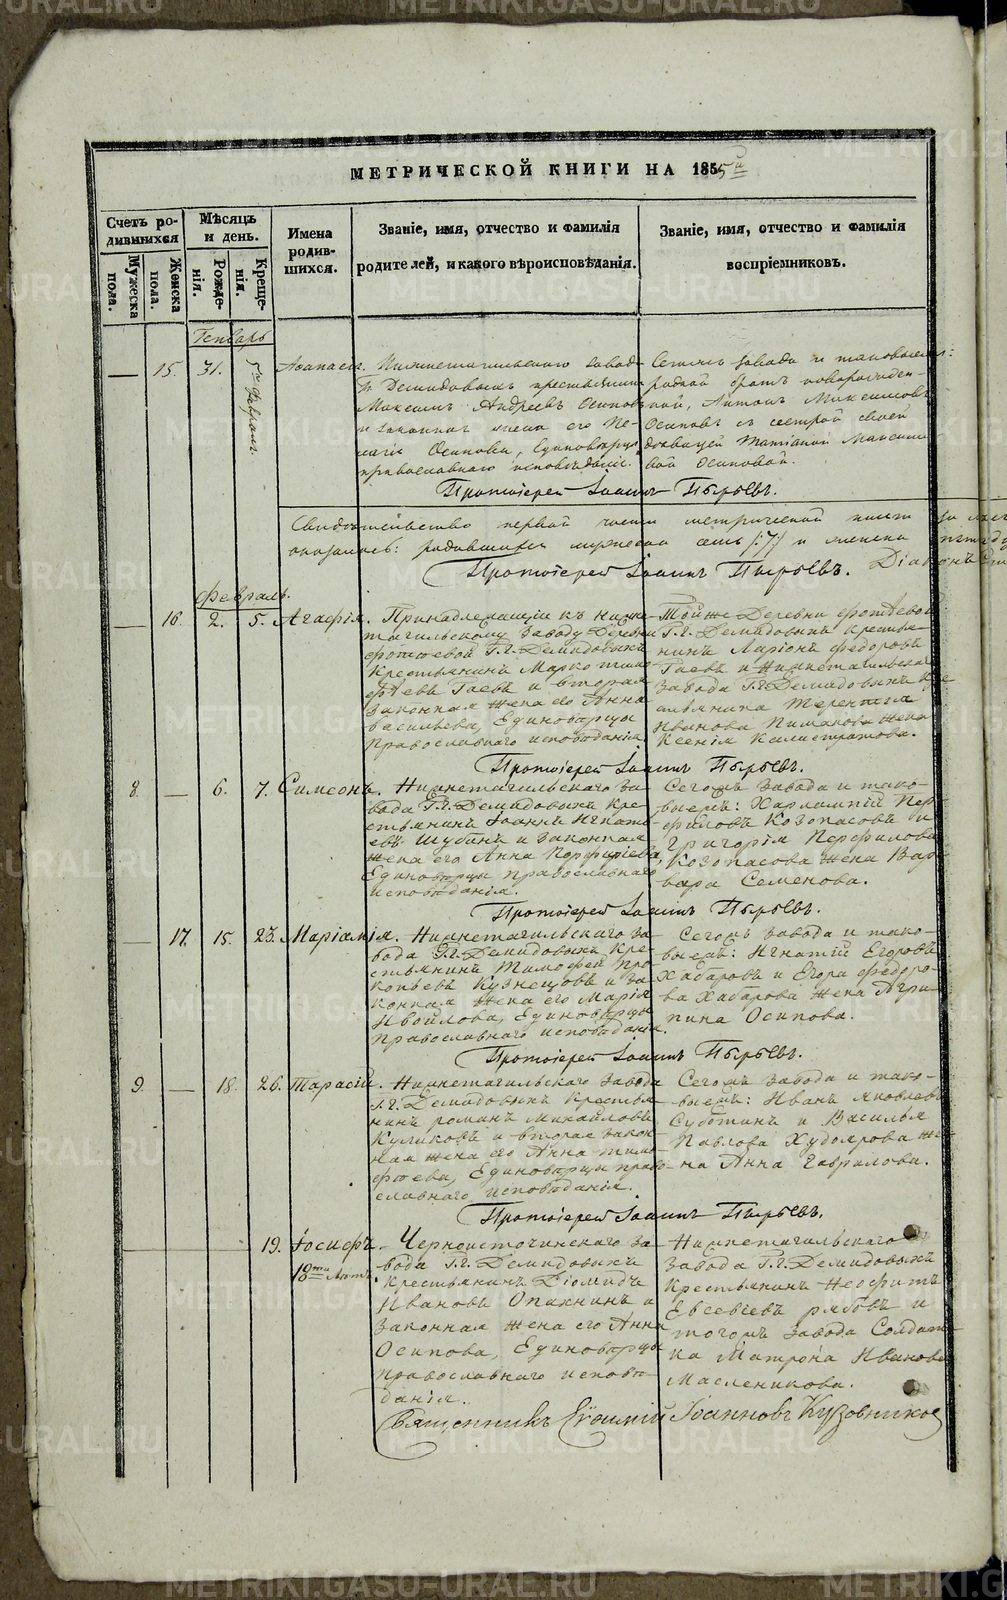 МЕТРИЧЕСКОЙ КНИГИ НА 1855й
Счетъ ро-
дившихся
Мѣсяцъ
и день.
Мужеска
пола.
Женска
пола.
Рожде-
нія.
Креще-
нія.
Имена
родив-
шихся.
Званіе, имя, отчество и фамилія
родителей, и какого вѣроисповѣданія.
Званіе, имя, отчество и фамилія
воспріемниковъ.
Генварь
— 15. 31. 5го Февраля.
Нижнетагильскаго завода
Гг. Демидовыхъ крестьянинъ
Максимъ Андреевъ Осиповъ
и законная жена его Пе-
лагія Осипова, Единовѣрцы
православнаго исповѣданія.
Сегожъ завода и таковыежъ:
родной братъ новорожден-
ной, Антонъ Максимовъ
Осиповъ съ сестрой своей
дѣвицей Татіаной Максимо-
вой Осиповой.
Протоіерей Іоаннъ Пырьевъ.
Свидѣтельство первой части метрической книги за
оказалось: родившихся мужеска семь /:7:/ и женска
Протоіерей Іоаннъ Пырьевъ. Діаконъ
Февраль.
— 16. 2. 5. Агафія.
Принадлежащій къ Нижне-
тагильскому заводу Деревни
Фотѣевой Гг. Демидовыхъ
Крестьянинъ Марко Тимо-
фѣевъ Гаевъ и вторая
законная жена его Анна
Васильева, Единовѣрцы
Православнаго исповѣданія.
Тойже Деревни Фотѣевой
Гг. Демидовыхъ крестья-
нинъ Ларіонъ Федоровъ
Гаевъ и Нижнетагильскаго
завода Гг. Демидовыхъ кре-
стьянина Терентія
Иванова жена
Ксенія Калистратова.
Протоіерей Іоаннъ Пырьевъ.
8. — 6. 7. Симеонъ.
Нижнетагильскаго за-
вода Гг. Демидовыхъ Кре-
стьянинъ Іоаннъ Игнать-
евъ и законная
жена его Анна Порфиріева,
Единовѣрцы православнаго
исповѣданія.
Сегожъ завода и тако-
выежъ: Харлампій Пер-
филовъ Козопасовъ и
Григорія Перфилова
Козопасова жена Вар-
вара Семенова.
Протоіерей Іоаннъ Пырьевъ.
— 17. 15. 23. Маріамія.
Нижнетагильскаго за-
вода Гг. Демидовыхъ Кре-
стьянинъ Тимофей Про-
копьевъ Кузнецовъ и за-
конная жена его Марія
Ивойлова, Единовѣрцы
Православнаго исповѣданія.
Сегожъ завода и тако-
выежъ: Игнатій Егоровъ
Хабаровъ и Егора Федоро-
ва Хабарова жена Агри-
пина Осипова.
Протоіерей Іоаннъ Пырьевъ.
9. — 18. 26. Тарасій.
Нижнетагильскаго завода
Гг. Демидовыхъ Крестья-
нинъ Романъ Михайловъ
Куликовъ и вторая закон-
ная жена его Анна Тимо-
фѣева, Единовѣрцы право-
славнаго исповѣданія.
Сегожъ завода и тако-
выежъ: Иванъ Яковлевъ
Субботинъ и Василья
Павлова Худоярова же-
на Анна Гаврилова.
Протоіерей Іоаннъ Пырьевъ.
19. Іосифъ
18ти лѣтъ.
Черноисточинскаго за-
вода Гг. Демидовыхъ
Крестьянинъ Діомидъ
Ивановъ и
законная жена его Анна
Осипова, Единовѣрцы
православнаго исповѣ-
данія.
Нижнетагильскаго
завода Гг. Демидовыхъ
Крестьянинъ Неофитъ
Евсевіевъ Рябовъ и
тогожъ завода Солдат-
ка Матрона Иванова
Масленикова.
Священникъ Евѳимій Іоанновъ Кузовниковъ